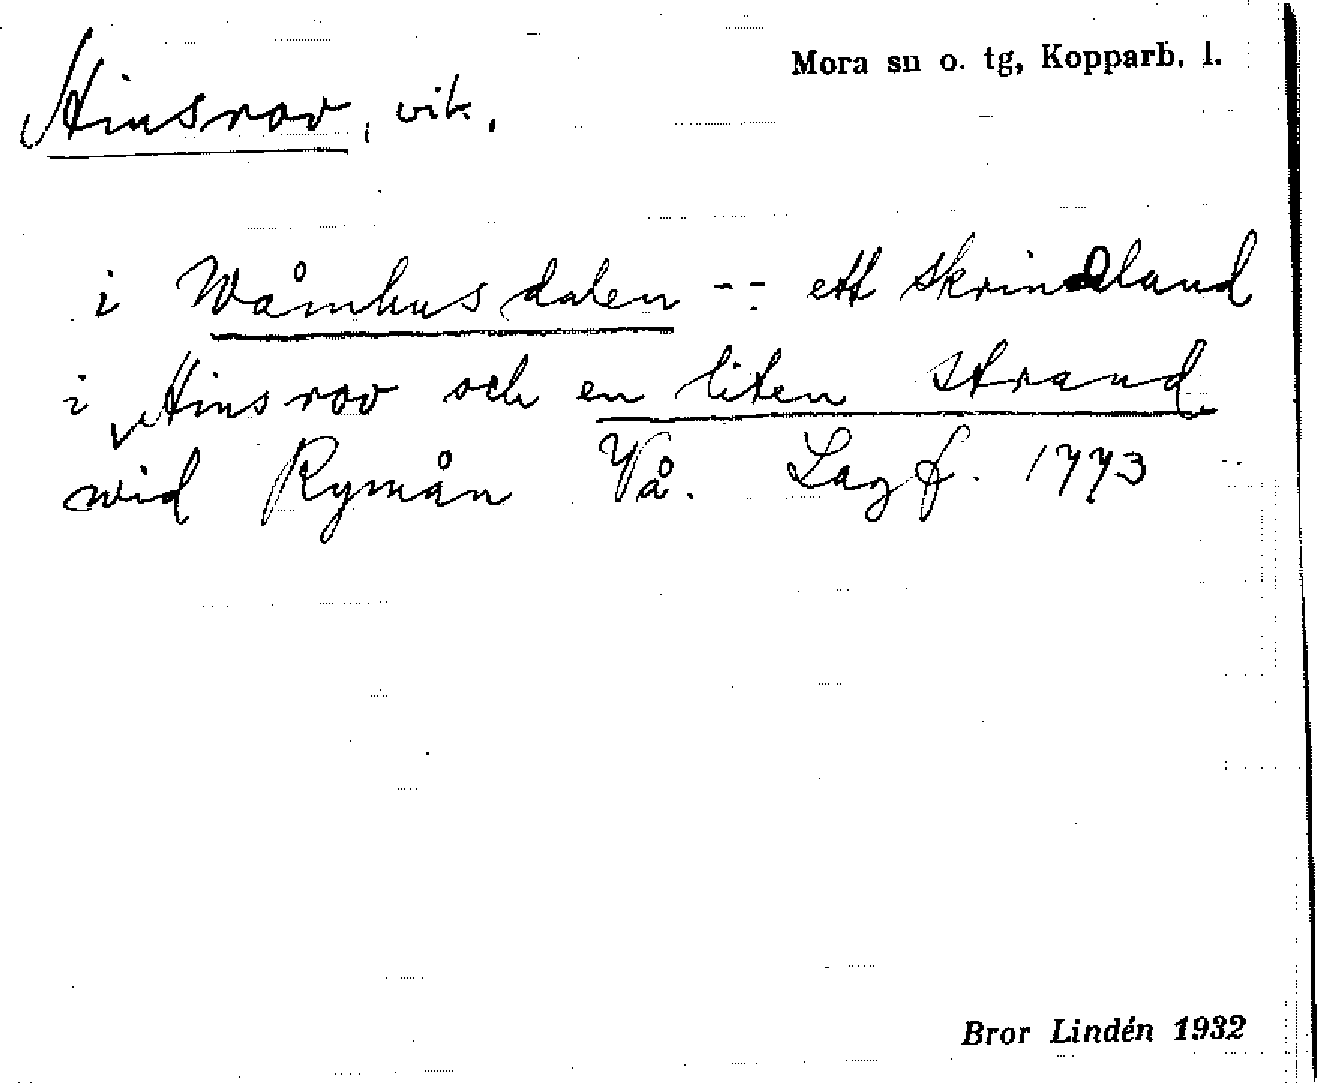 Mora sn o. tg, Kopparb. l.
Hinsrov, vik.
i Wåmhusdalen -- ett skrinnland
i Hinsrov och en liten strand
wid Rymån Vå. Lagf. 1773
Bror Lindén 1932